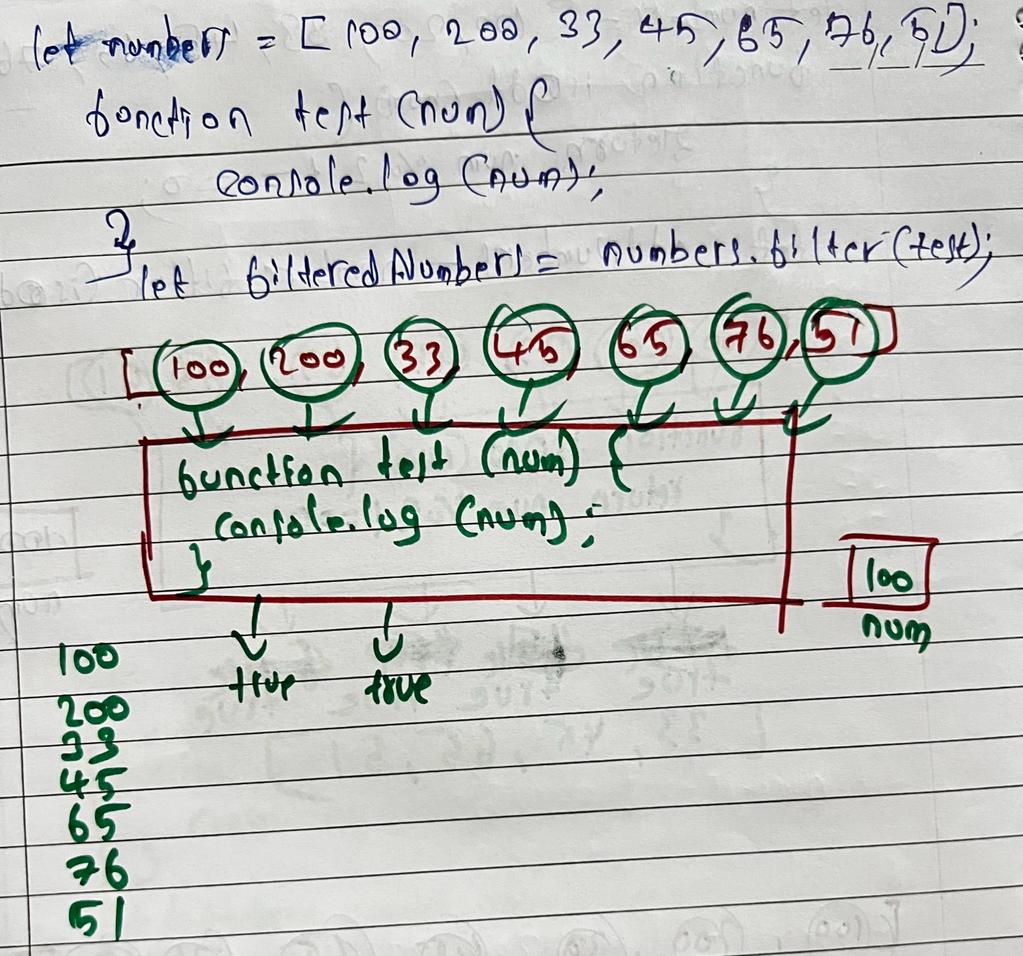 let numbers = [ 100, 200, 33, 45, 65, 76, 51];
function test (num) {
console.log (num);
}
let filteredNumbers = numbers.filter (test);
[ 100, 200, 33, 45, 65, 76, 51 ]
function test (num) {
console.log (num) ;
}
100
num
true true
100
200
33
45
65
76
51